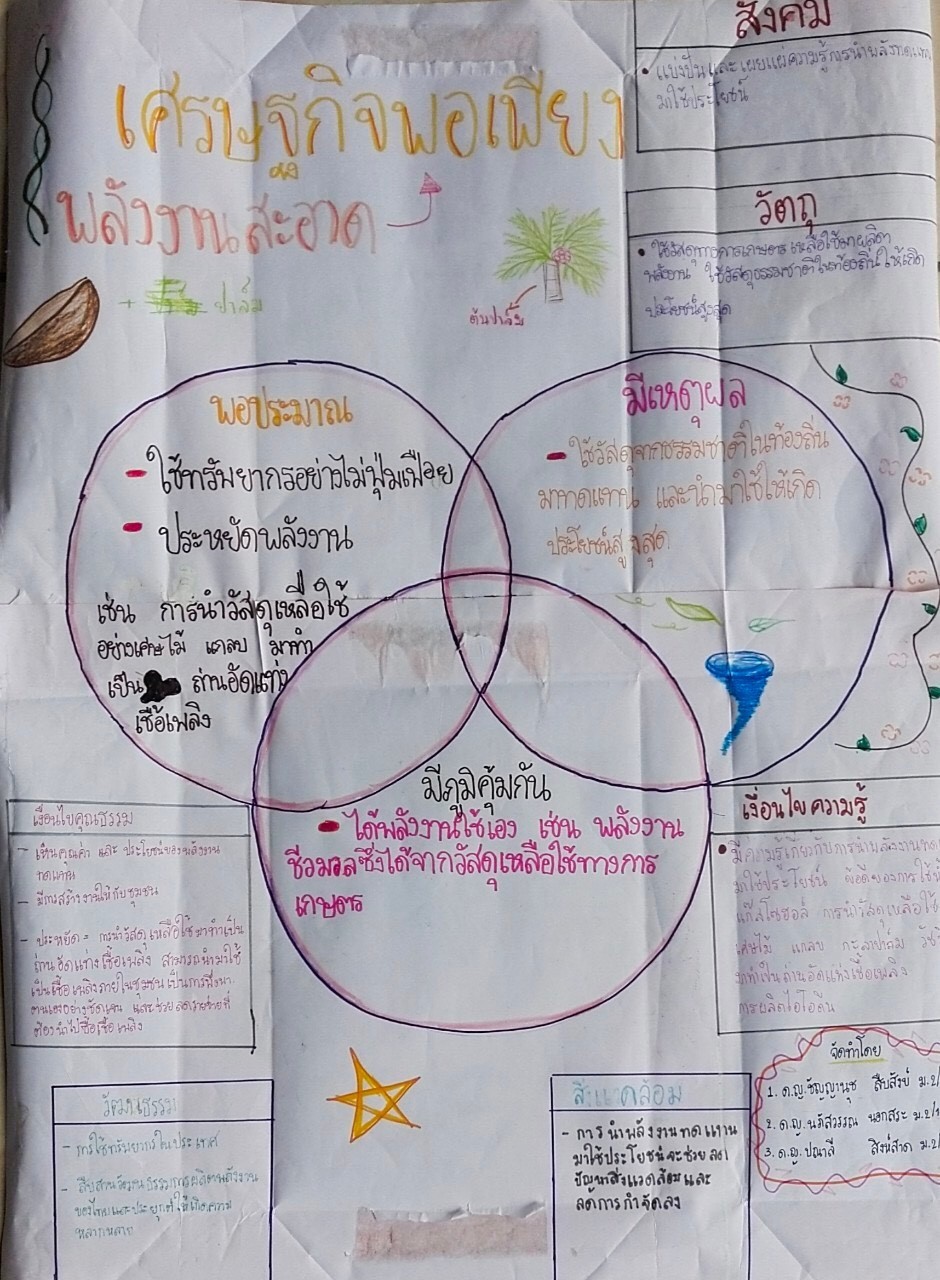 เศรษฐกิจพอเพียง
พลังงานสะอาด
+ ปาล์ม
ต้นปาล์ม
สังคม
• แบ่งปันและเผยแผ่ความรู้การนำพลังทดแทน
มาใช้ประโยชน์
วัตถุ
• ใช้วัสดุทางการเกษตรเหลือใช้มาผลิต
พลังงาน ใช้วัสดุธรรมชาติในท้องถิ่นให้เกิด
ประโยชน์สูงสุด
พอประมาณ
- ใช้ทรัพยากรอย่างไม่ฟุ่มเฟือย
- ประหยัดพลังงาน
เช่น การนำวัสดุเหลือใช้
อย่างเศษไม้ แกลบ มาทำ
เป็น ถ่านอัดแท่ง
เชื้อเพลิง
มีเหตุผล
- ใช้วัสดุจากธรรมชาติในท้องถิ่น
มาทดแทน และนำมาใช้ให้เกิด
ประโยชน์สูงสุด
มีภูมิคุ้มกัน
- ได้พลังงานใช้เอง เช่น พลังงาน
ชีวมวลซึ่งได้จากวัสดุเหลือใช้ทางการ
เกษตร
เงื่อนไขคุณธรรม
- เห็นคุณค่า และ ประโยชน์ของพลังงาน
ทดแทน
- มีการสร้างงานให้กับชุมชน
- ประหยัด = การนำวัสดุเหลือใช้มาทำเป็น
ถ่านอัดแท่งเชื้อเพลิง สามารถนำมาใช้
เป็นเชื้อเพลิงภายในชุมชนเป็นการพึ่งพา
ตนเองอย่างชัดเจน และช่วยลดรายจ่ายที่
ต้องนำไปซื้อเชื้อเพลิง
เงื่อนไขความรู้
• มีความรู้เกี่ยวกับการนำพลังงานทดแทน
มาใช้ประโยชน์ ข้อดีของการใช้
แก๊สโซฮอล์ การนำวัสดุเหลือใช้
เศษไม้ แกลบ กะลาปาล์ม
มาทำเป็นถ่านอัดแท่งเชื้อเพลิง
การผลิตไบโอดีเซล
วัฒนธรรม
- การใช้ทรัพยากรในประเทศ
- สืบสานวัฒนธรรมการผลิตพลังงาน
ของไทยและประยุกต์ให้เกิดความ
หลากหลาย
สิ่งแวดล้อม
- การนำพลังงานทดแทน
มาใช้ประโยชน์จะช่วยลด
ปัญหาสิ่งแวดล้อมและ
ลดการกำจัดลง
จัดทำโดย
1. ด.ญ.ชัญญานุช สืบสังข์ ม.2/
2. ด.ญ.นภัสวรรณ นอกสระ ม.2/
3. ด.ญ.ปณาลี สิงห์สาด ม.2/